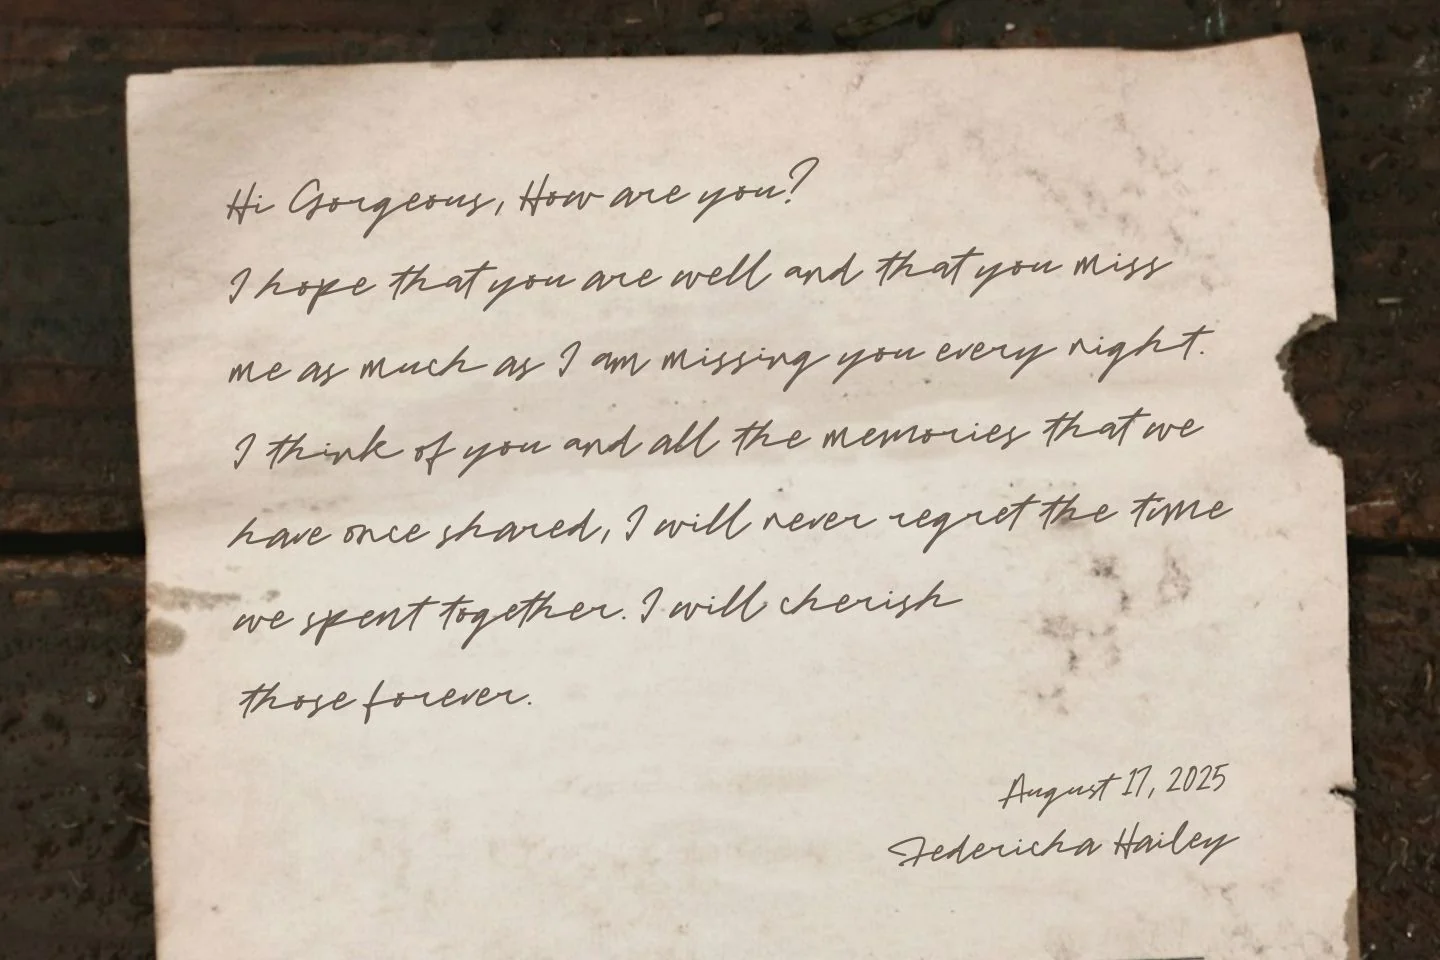 Hi Gorgeous, How are you?
I hope that you are well and that you miss
me as much as I am missing you every night.
I think of you and all the memories that we
have once shared, I will never regret the time
we spent together. I will cherish
those forever.
August 17, 2025
Federicha Hailey